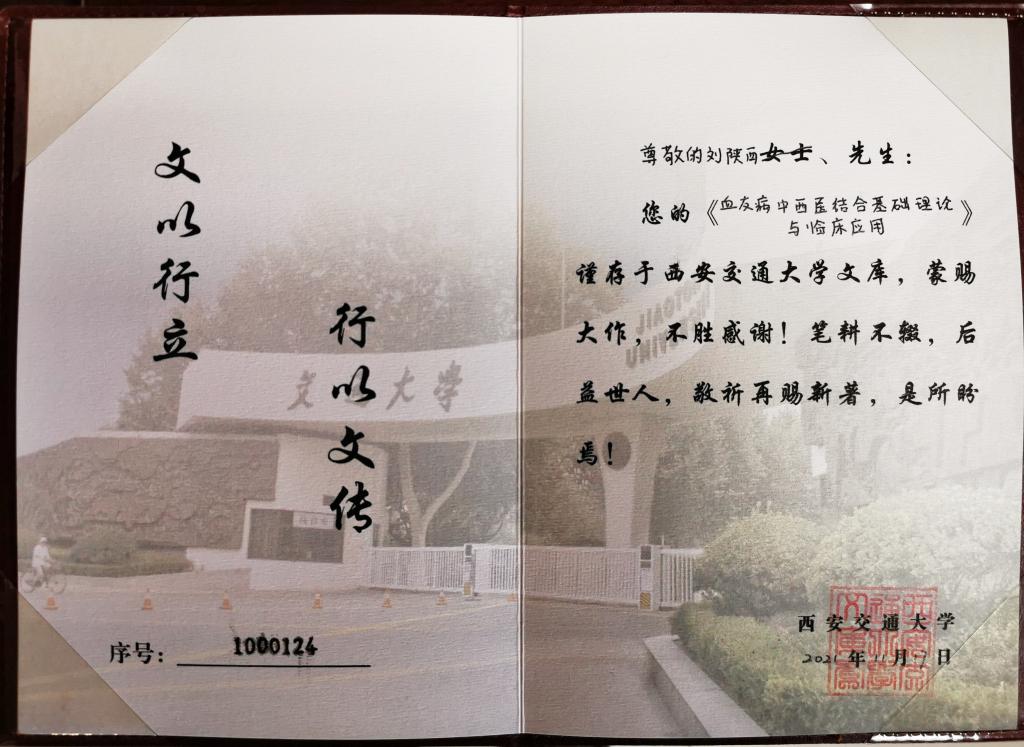 文以行立
行以文传
序号：1000124
尊敬的刘陕西女士、先生：
您的《血友病中西医结合基础理论
与临床应用》
谨存于西安交通大学文库，蒙赐
大作，不胜感谢！笔耕不辍，后
益世人，敬祈再赐新著，是所盼
焉！
西安交通大学
2021年11月17日
交通大学